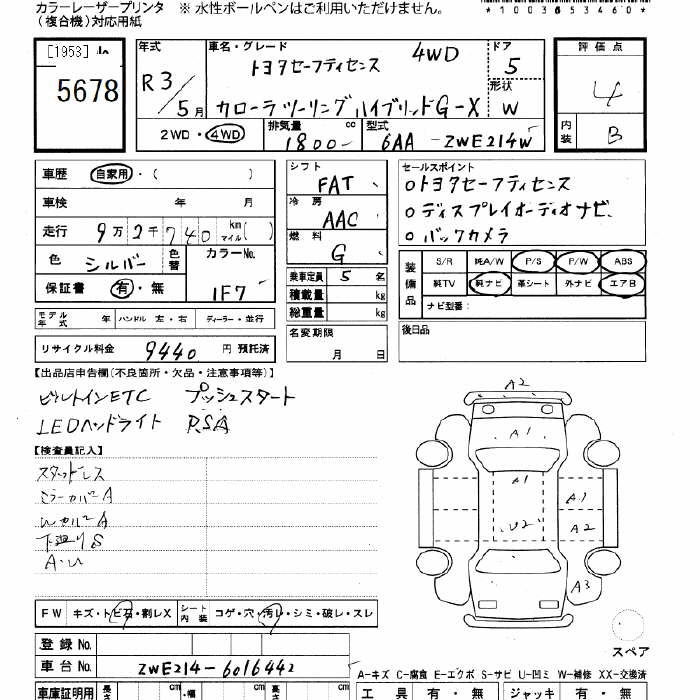 カラーレーザープリンタ ※ 水性ボールペンはご利用いただけません。
(複合機)対応用紙
*1003653460*
[1953]
5678
年式 R3/5月
車名・グレード トヨタセーフティセンス 4WD
カローラツーリングハイブリッドG-X
ドア 5
形状 W
評価点 4
内装 B
2WD・4WD 排気量 1800 cc 型式 6AA-ZWE214W
車歴 自家用・( )
車検 年 月
走行 9万2千740 km マイル( )
色 シルバー 色替 カラーNo. 1F7
保証書 有・無
モデル年式 年 ハンドル 左・右 ディーラー・並行
リサイクル料金 9440 円 預託済
シフト FAT
冷房 AAC
燃料 G
乗車定員 5 名
積載量 kg
総重量 kg
名変期限 月 日
セールスポイント
○トヨタセーフティセンス
○ディスプレイオーディオナビ
○バックカメラ
装備品 S/R 純A/W P/S P/W ABS
純TV 純ナビ 革シート 外ナビ エアB
ナビ型番:
後日品
【出品店申告欄(不良箇所・欠品・注意事項等)】
ビルトインETC プッシュスタート
LEDヘッドライト RSA
【検査員記入】
スタッドレス
ミラーカバーA
Wカバー A
下廻りS
A・U
A2
A1
A1
U2
A1
A2
A3
スペア
FW キズ・トビ石・割レX シート内装 コゲ・穴・汚レ・シミ・破レ・スレ
登録 No.
車台 No. ZWE214-6016442
A-キズ C-腐食 E-エクボ S-サビ U-凹ミ W-補修 XX-交換済
車庫証明用 長さ cm 幅 cm 高さ cm
工具 有・無 ジャッキ 有・無